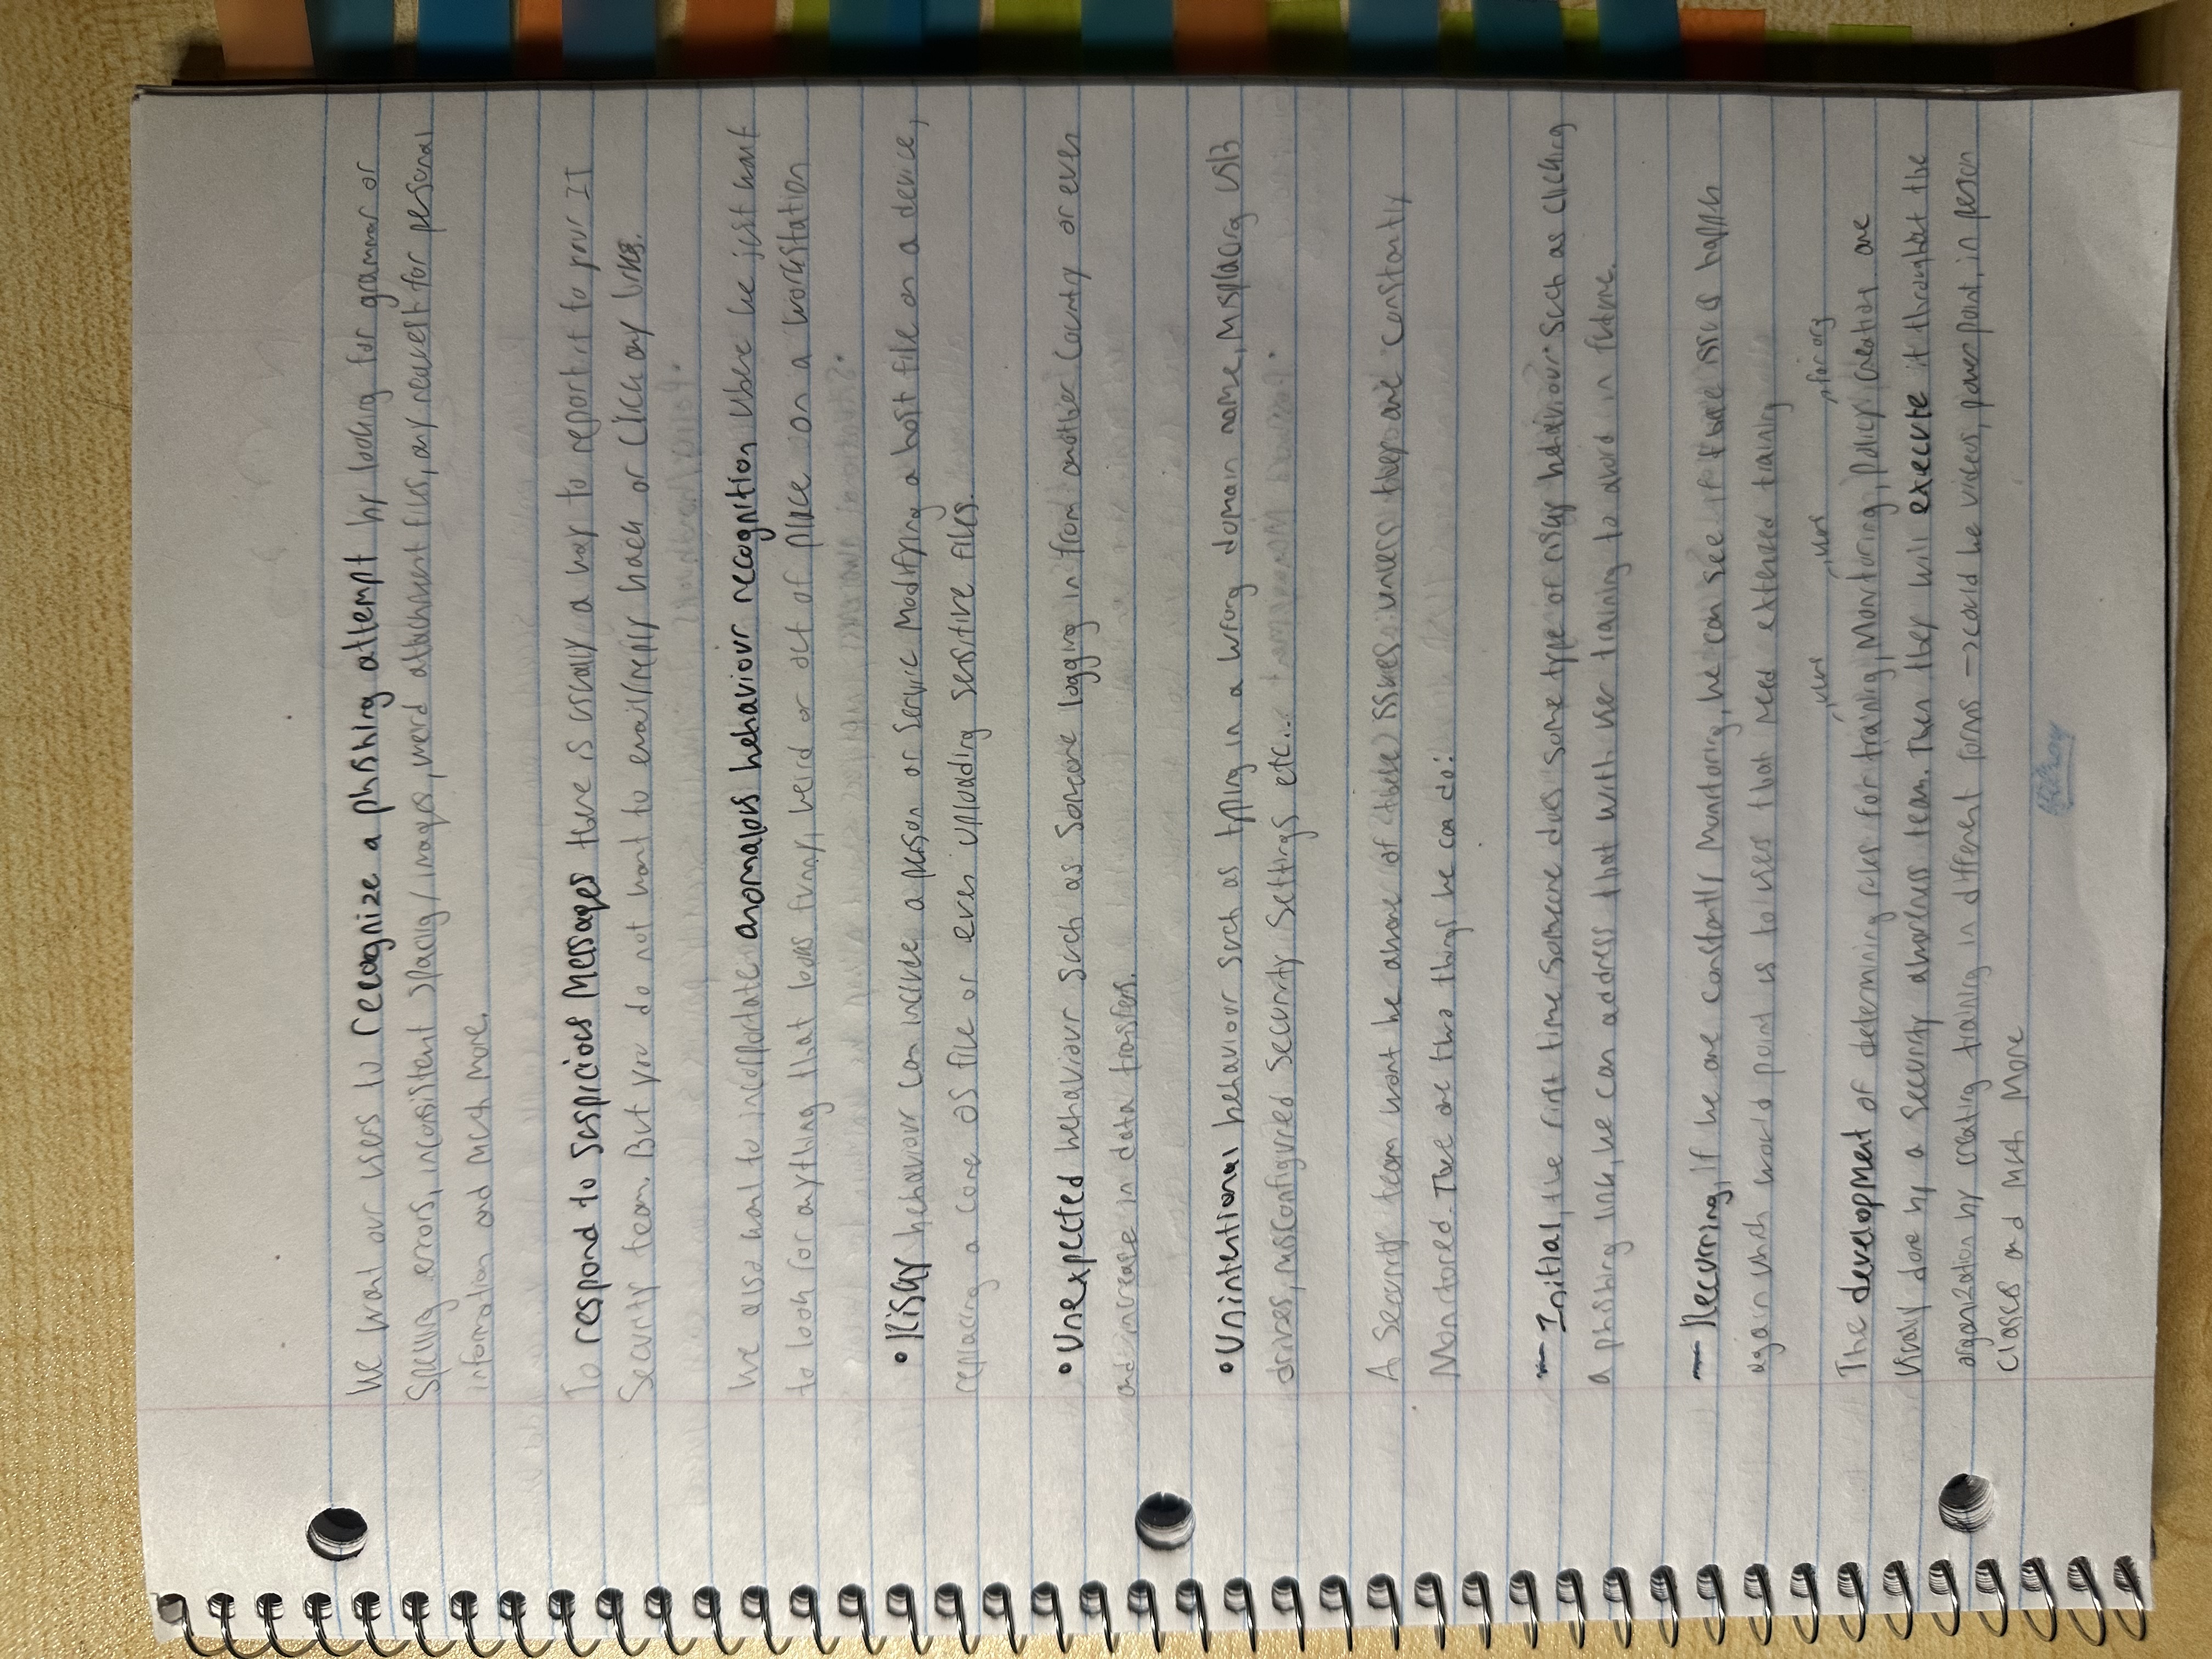 We want our users to recognize a phishing attempt by looking for grammar or
spelling errors, inconsistent spacing/images, weird attachment files, any request for personal
information and much more.
To respond to suspicious messages there is usually a way to report it to your IT
Security team. But you do not want to email/reply back or click any links.
We also want to incorportate anomalous behaviour recognition where we just want
to look for anything that looks funny, weird or out of place on a workstation
• Risky behaviour can include a person or service modifying a host file on a device,
replacing a core OS file or even uploading sensitive files.
• Unexpected behaviour such as someone logging in from another country or even
and increase in data transfers.
• Unintentional behaviour such as typing in a wrong domain name, misplacing USB
drives, misconfigured security settings etc...
A security team wont be aware of these issues unless they are constantly
monitored. There are two things we can do:
- Initial, the first time someone does some type of risky behaviour such as clicking
a phishing link, we can address that with user training to avoid in future.
- Recurring, if we are constantly monitoring, we can see if these issues happen
again which would point us to users that need extended training
users users for org
The development of determining rules for training, monitoring, policy creation are
usually done by a security awareness team. Then they will execute it throughout the
organization by creating training in different forms → could be videos, powerpoint, in person
classes and much more